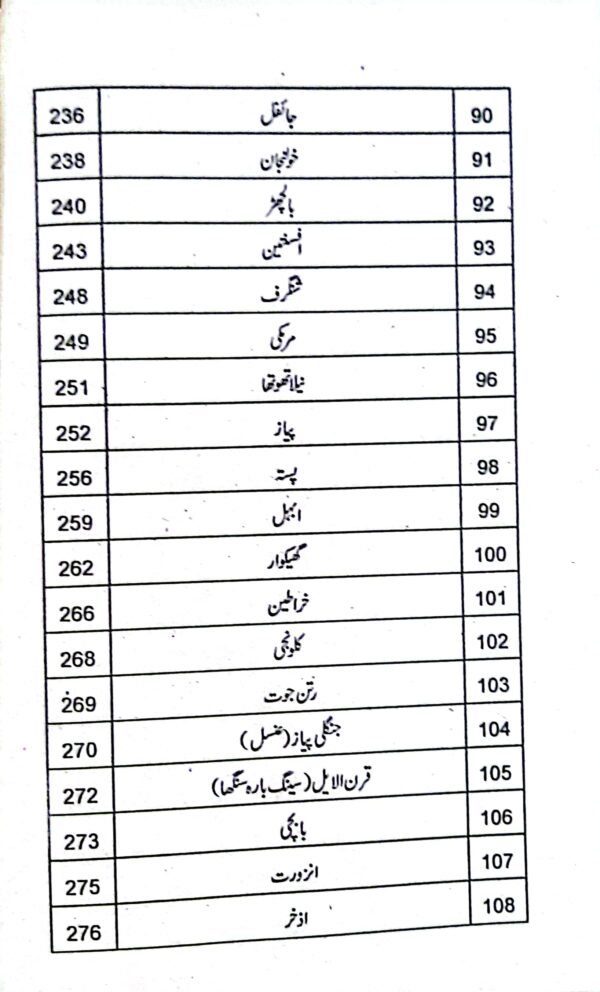 90 جائفل 236
91 خولنجان 238
92 بالچھڑ 240
93 افسنتین 243
94 شنگرف 248
95 مرمکی 249
96 نیلاتھوتھا 251
97 پیاز 252
98 پستہ 256
99 ابہل 259
100 گھیکوار 262
101 خراطین 266
102 کلونجی 268
103 رتن جوت 269
104 جنگلی پیاز (عنصل) 270
105 قرن الایل (سینگ بارہ سنگھا) 272
106 بابچی 273
107 انزورت 275
108 اذخر 276